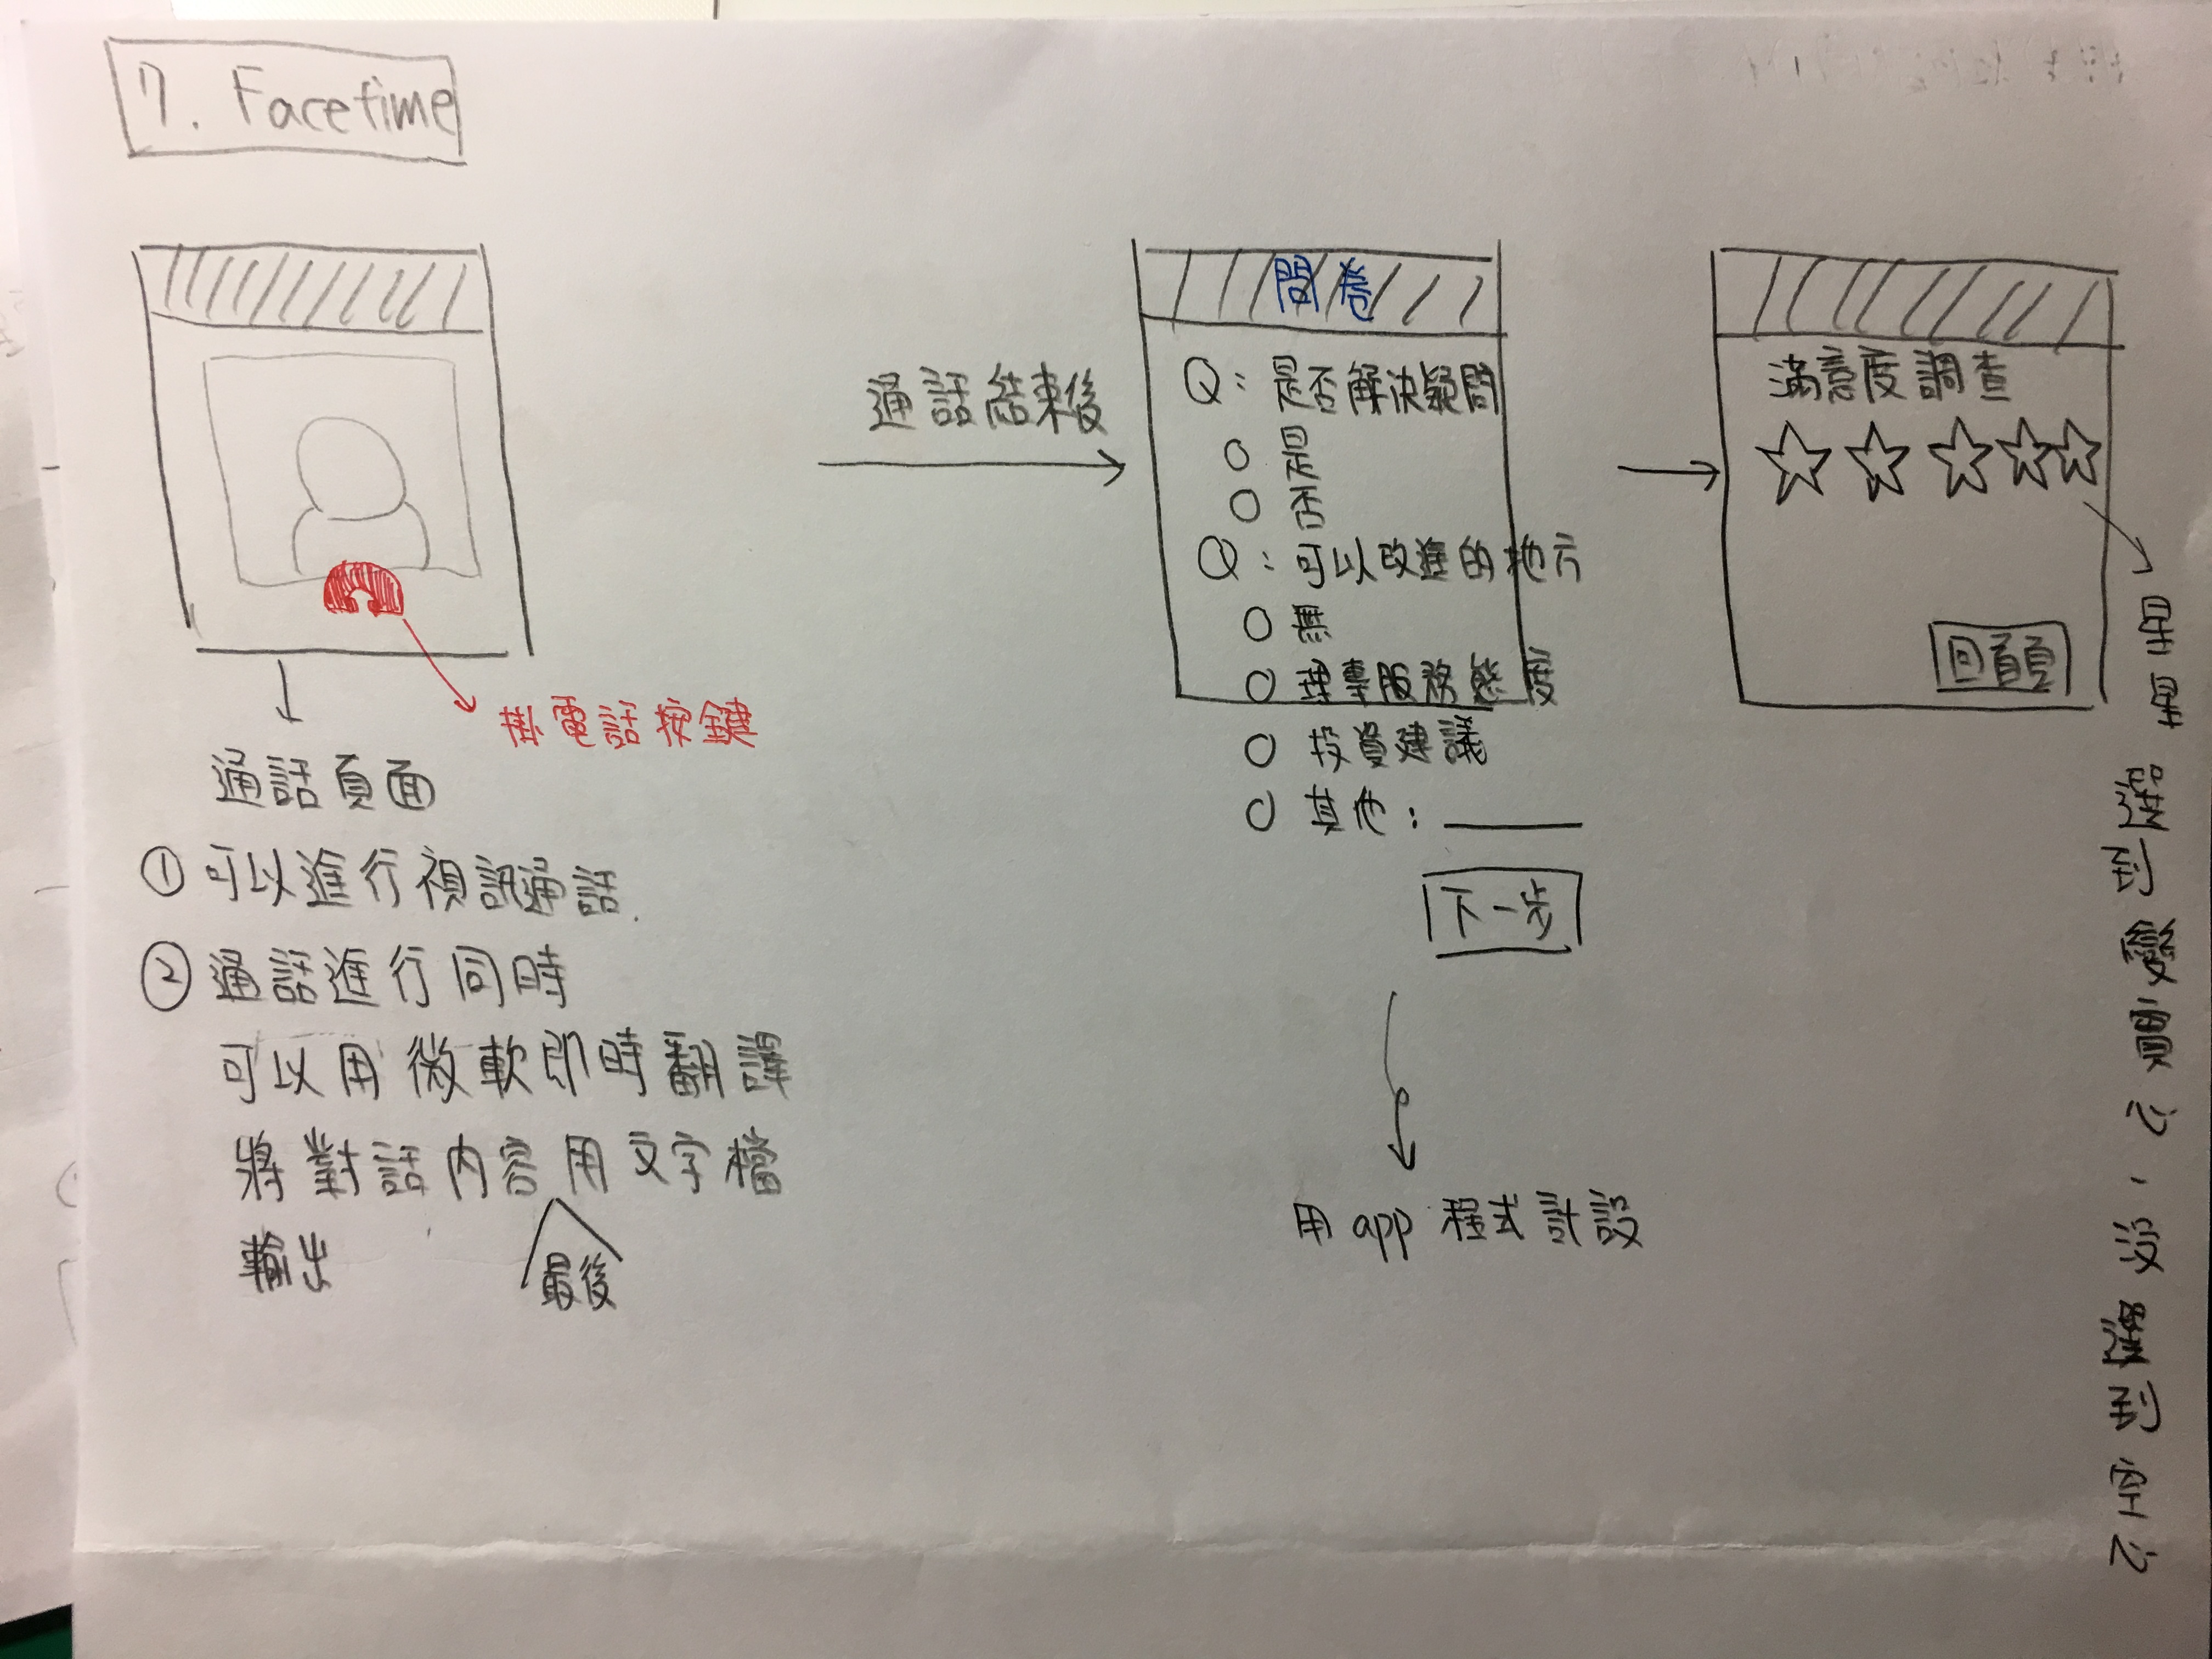 7. Facetime
掛電話按鍵
通話頁面
① 可以進行視訊通話.
② 通話進行同時
可以用微軟即時翻譯
將對話內容用文字檔
最後
輸出
通話結束後
問卷
Q：是否解決疑問
○ 是
○ 否
Q：可以改進的地方
○ 無
○ 理專服務態度
○ 投資建議
○ 其他：
下一步
用 app 程式計設
滿意度調查
回首頁
星星選到變實心、沒選到空心